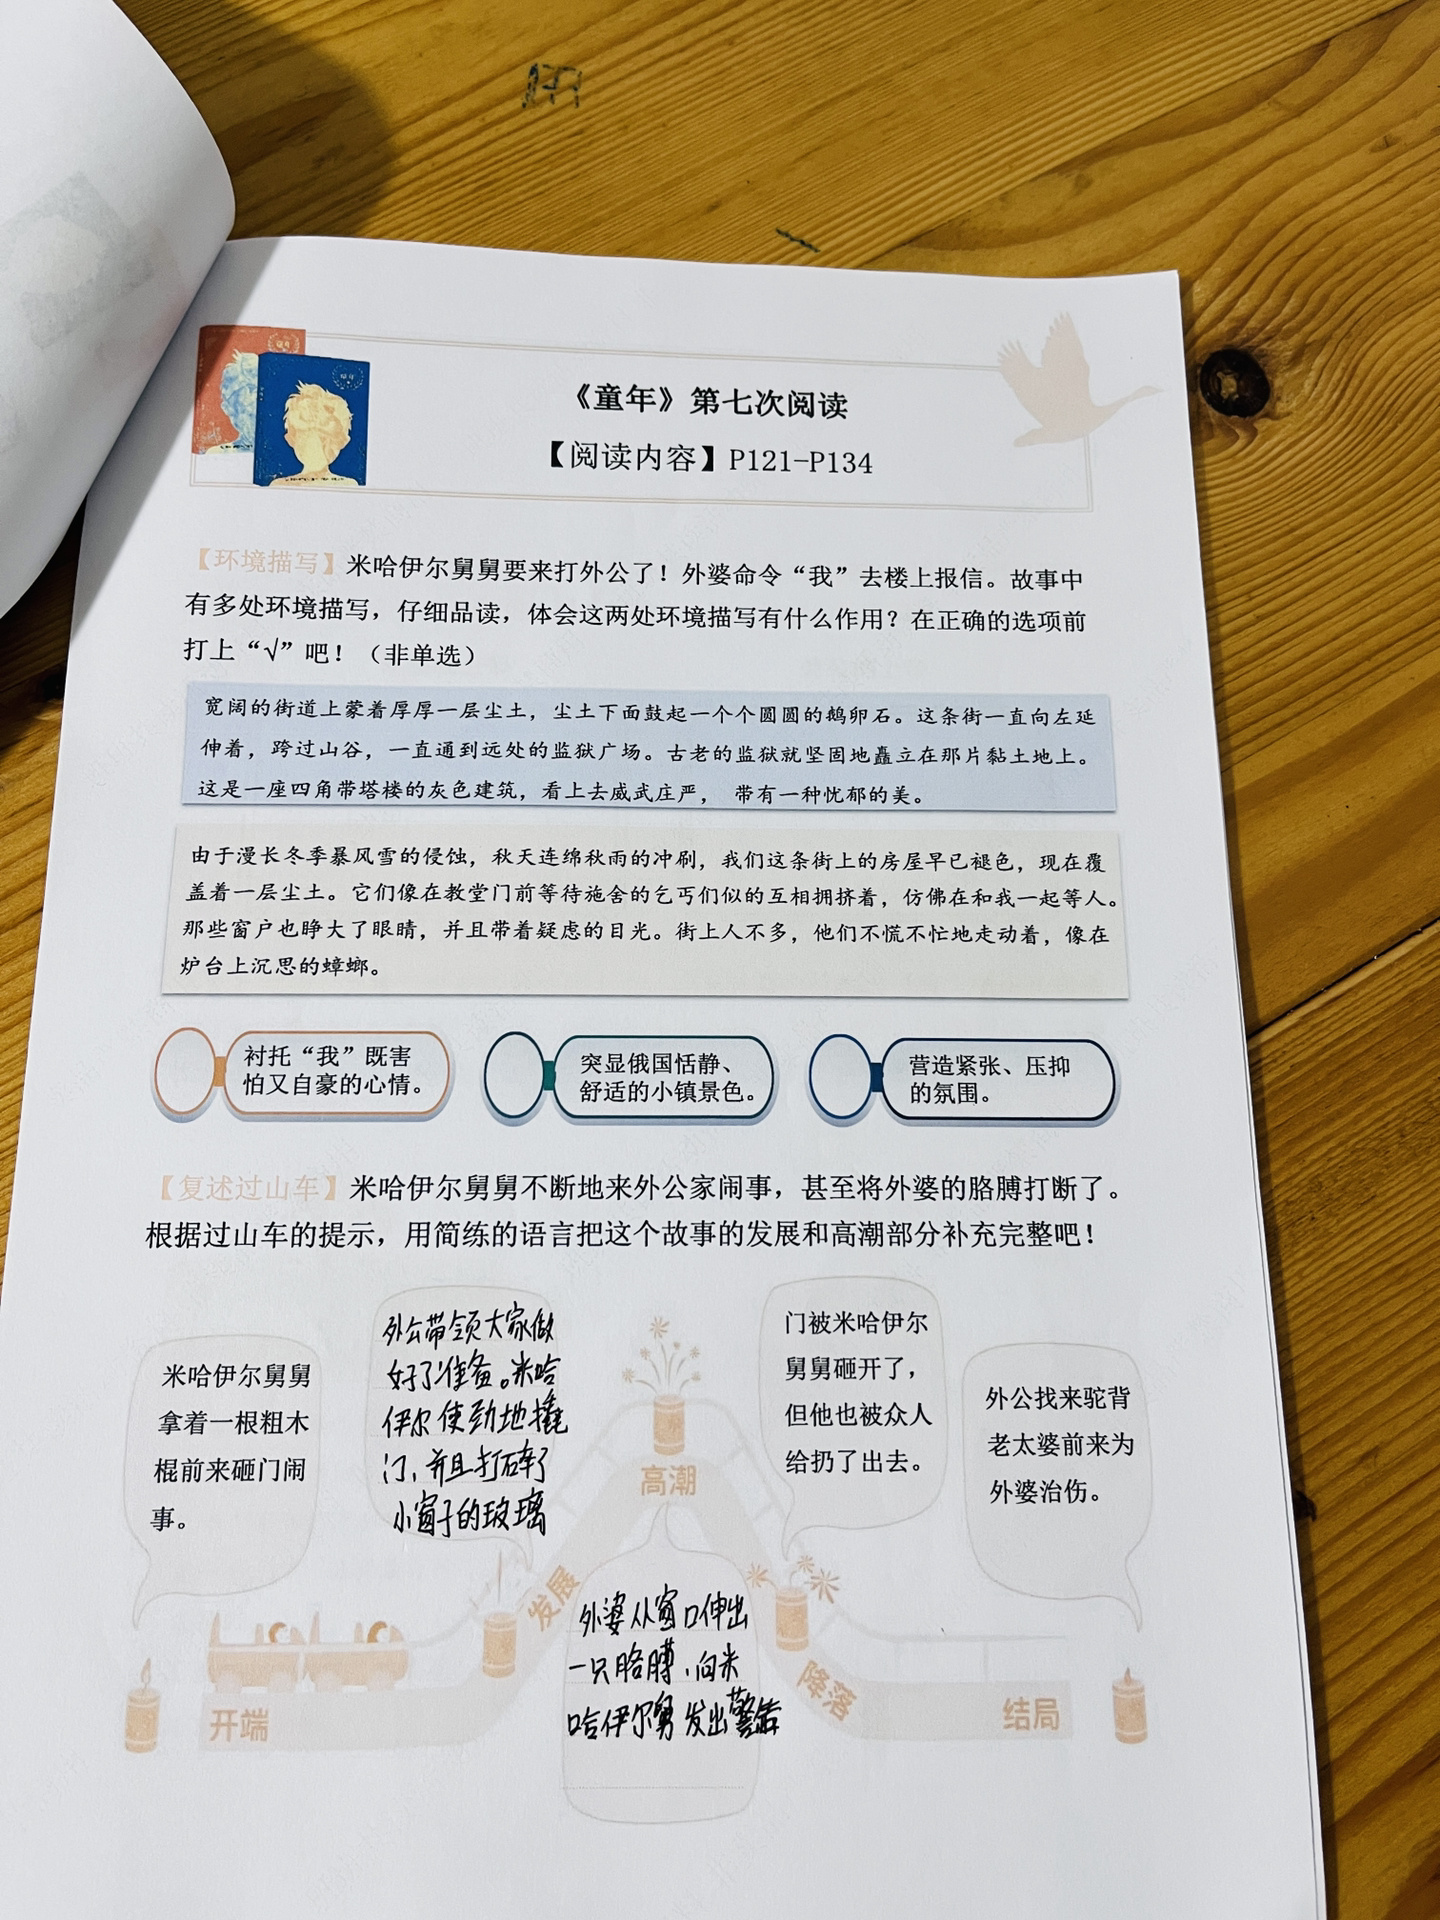 《童年》第七次阅读
【阅读内容】P121-P134
【环境描写】米哈伊尔舅舅要来打外公了！外婆命令“我”去楼上报信。故事中
有多处环境描写，仔细品读，体会这两处环境描写有什么作用？在正确的选项前
打上“√”吧！（非单选）
宽阔的街道上蒙着厚厚一层尘土，尘土下面鼓起一个个圆圆的鹅卵石。这条街一直向左延
伸着，跨过山谷，一直通到远处的监狱广场。古老的监狱就坚固地矗立在那片黏土地上。
这是一座四角带塔楼的灰色建筑，看上去威武庄严， 带有一种忧郁的美。
由于漫长冬季暴风雪的侵蚀，秋天连绵秋雨的冲刷，我们这条街上的房屋早已褪色，现在覆
盖着一层尘土。它们像在教堂门前等待施舍的乞丐们似的互相拥挤着，仿佛在和我一起等人。
那些窗户也睁大了眼睛，并且带着疑虑的目光。街上人不多，他们不慌不忙地走动着，像在
炉台上沉思的蟑螂。
衬托“我”既害
怕又自豪的心情。
突显俄国恬静、
舒适的小镇景色。
营造紧张、压抑
的氛围。
【复述过山车】米哈伊尔舅舅不断地来外公家闹事，甚至将外婆的胳膊打断了。
根据过山车的提示，用简练的语言把这个故事的发展和高潮部分补充完整吧！
米哈伊尔舅舅
拿着一根粗木
棍前来砸门闹
事。
外公带领大家做
好了准备。米哈
伊尔使劲地撬
门，并且打碎了
小窗子的玻璃
高潮
门被米哈伊尔
舅舅砸开了，
但他也被众人
给扔了出去。
外公找来驼背
老太婆前来为
外婆治伤。
发展
外婆从窗口伸出
一只胳膊，向米
哈伊尔舅发出警告
降落
开端
结局